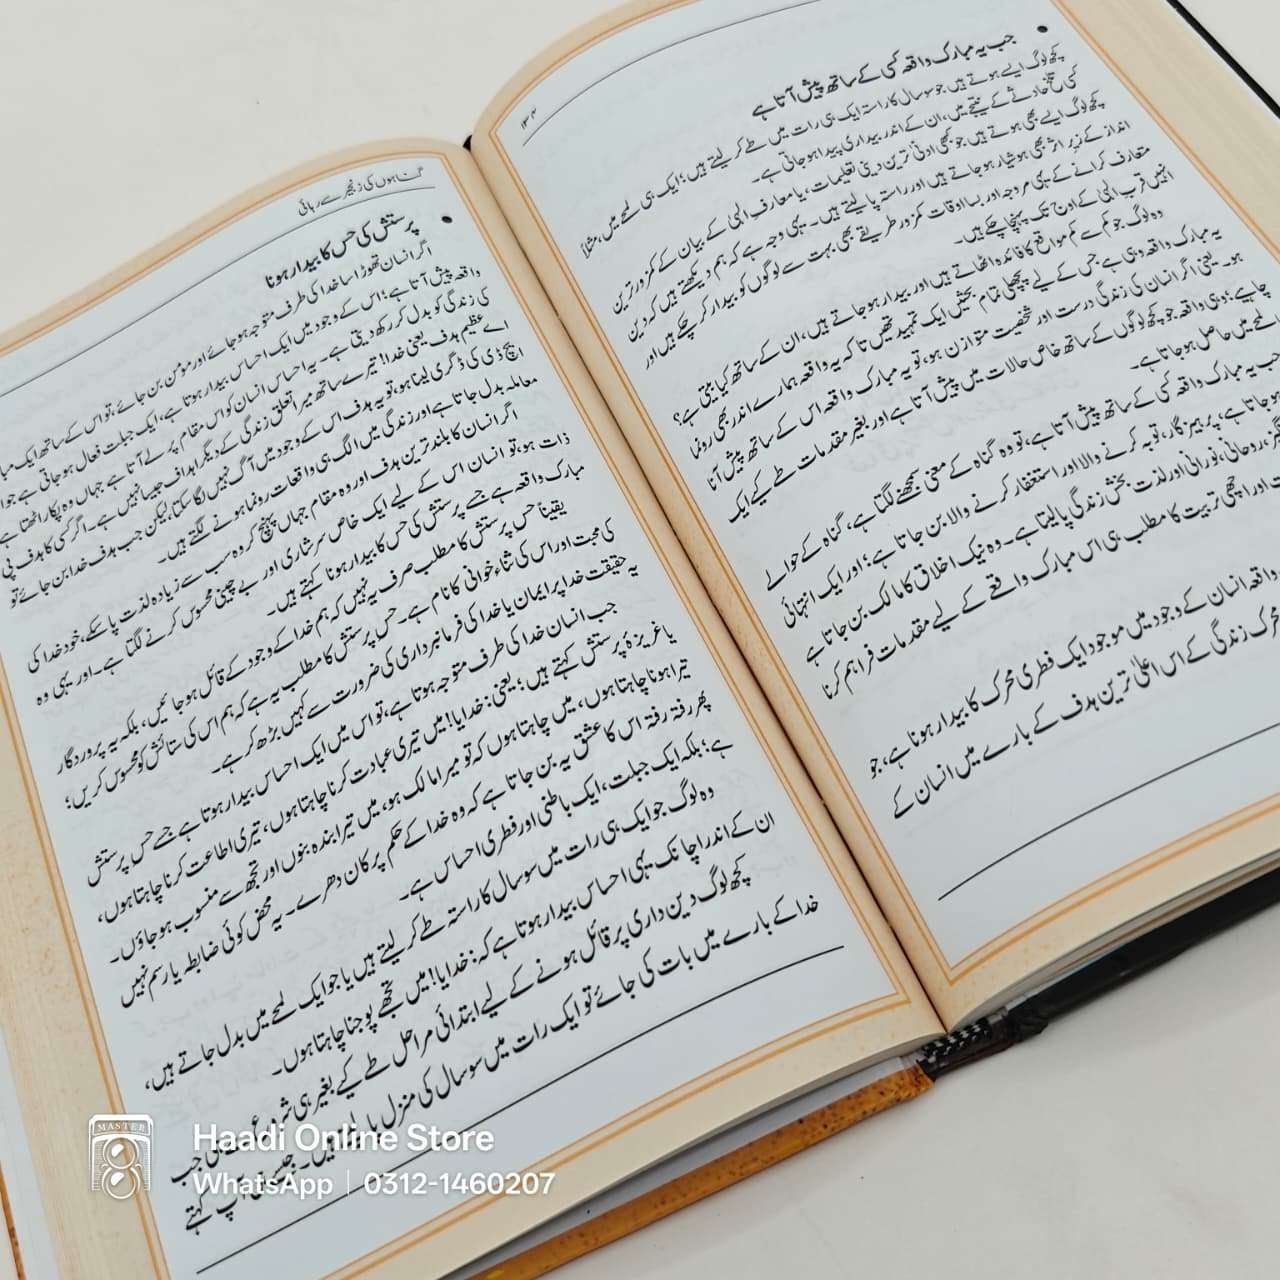 ۱۳۴
جب یہ مبارک واقعہ کسی کے ساتھ پیش آتا ہے
کچھ لوگ ایسے ہوتے ہیں جو ۱۰۰ سال کا راستہ ایک ہی رات میں طے کر لیتے ہیں؛ ایک ہی لمحے میں، مثلاً
کسی تلخ حادثے کے نتیجے میں، ان کے اندر بیداری پیدا ہو جاتی ہے۔
کچھ لوگ ایسے بھی ہوتے ہیں جو کبھی ادنیٰ ترین دینی تعلیمات، یا معارف الٰہی کے بیان کے کمزور ترین
انداز کے زیر اثر بھی ہوشیار ہو جاتے ہیں اور راستہ پا لیتے ہیں۔ یہی وجہ ہے کہ ہم دیکھتے ہیں کہ دین
متعارف کرانے کے یہی مروجہ اور بسا اوقات کمزور طریقے بھی بہت سے لوگوں کو بیدار کر چکے ہیں اور
انہیں قرب الٰہی کے اوج تک پہنچا چکے ہیں۔
وہ لوگ جو کم سے کم مواقع کا فائدہ اٹھاتے ہیں اور بیدار ہو جاتے ہیں، ان کے ساتھ کیا بیتی ہے؟
یہ مبارک واقعہ وہی ہے جس کے لیے پچھلی تمام بحثیں ایک تمہید تھیں تاکہ یہ واقعہ ہمارے اندر بھی رونما
ہو۔ یعنی اگر انسان کی زندگی درست اور شخصیت متوازن ہو، تو یہ مبارک واقعہ اس کے ساتھ پیش آنا
چاہیے؛ وہی واقعہ جو کچھ لوگوں کے ساتھ خاص حالات میں پیش آتا ہے اور بغیر مقدمات طے کیے ایک
لمحے میں حاصل ہو جاتا ہے۔
جب یہ مبارک واقعہ کسی کے ساتھ پیش آتا ہے، تو وہ گناہ کے معنی سمجھنے لگتا ہے، گناہ کے حوالے
ہو جاتا ہے، پرہیز گار، توبہ کرنے والا اور استغفار کرنے والا بن جاتا ہے؛ اور ایک انتہائی
روحانی، نورانی اور لذت بخش زندگی پا لیتا ہے۔ وہ نیک اخلاق کا مالک بن جاتا ہے
اور اچھی تربیت کا مطلب ہی اس مبارک واقعے کے لیے مقدمات فراہم کرنا
واقعہ انسان کے وجود میں موجود ایک فطری محرک کا بیدار ہونا ہے، جو
محرک زندگی کے اس اعلیٰ ترین ہدف کے بارے میں انسان کے
گناہوں کی زنجیر سے رہائی
پرستش کی حس کا بیدار ہونا
اگر انسان تھوڑا سا خدا کی طرف متوجہ ہو جائے اور مومن بن جائے، تو اس کے ساتھ ایک
واقعہ پیش آتا ہے؛ اس کے وجود میں ایک احساس بیدار ہوتا ہے، ایک جبلت فعال ہو جاتی ہے جو
کی زندگی کو بدل کر رکھ دیتی ہے۔ یہ احساس انسان کو اس مقام پر لے آتا ہے جہاں وہ پکار اٹھتا ہے
اے عظیم ہدف یعنی خدا! تیرے ساتھ میرا تعلق زندگی کے دیگر اہداف جیسا نہیں ہے۔ اگر کسی کا ہدف پی
ایچ ڈی کی ڈگری لینا ہو، تو یہ ہدف اس کے وجود میں آگ نہیں لگا سکتا، لیکن جب ہدف خدا بن جائے تو
معاملہ بدل جاتا ہے اور زندگی میں الگ ہی واقعات رونما ہونے لگتے ہیں۔
اگر انسان کا بلند ترین ہدف اور وہ مقام جہاں پہنچ کر وہ سب سے زیادہ لذت پا سکے، خود خدا کی
ذات ہو، تو انسان اس کے لیے ایک خاص سرشاری اور بے چینی محسوس کرنے لگتا ہے۔ اور یہی وہ
مبارک واقعہ ہے جسے پرستش کی حس کا بیدار ہونا کہتے ہیں۔
یقیناً حس پرستش کا مطلب صرف یہ نہیں کہ ہم خدا کے وجود کے قائل ہو جائیں، بلکہ یہ پروردگار
کی محبت اور اس کی ثناء خوانی کا نام ہے۔ حس پرستش کا مطلب یہ ہے کہ ہم اس کی ستائش کو محسوس کریں؛
یہ حقیقت خدا پر ایمان یا خدا کی فرمانبرداری کی ضرورت سے کہیں بڑھ کر ہے۔
جب انسان خدا کی طرف متوجہ ہوتا ہے، تو اس میں ایک احساس بیدار ہوتا ہے جسے حس پرستش
یا غریزۂ پرستش کہتے ہیں؛ یعنی: خدایا! میں تیری عبادت کرنا چاہتا ہوں، تیری اطاعت کرنا چاہتا ہوں،
تیرا ہونا چاہتا ہوں، میں چاہتا ہوں کہ تو میرا مالک ہو، میں تیرا بندہ بنوں اور تجھ سے منسوب ہو جاؤں۔
پھر رفتہ رفتہ اس کا عشق یہ بن جاتا ہے کہ وہ خدا کے حکم پر کان دھرے۔ یہ محض کوئی ضابطہ یا رسم نہیں
ہے؛ بلکہ ایک جبلت، ایک باطنی اور فطری احساس ہے۔
وہ لوگ جو ایک ہی رات میں سو سال کا راستہ طے کر لیتے ہیں یا جو ایک لمحے میں بدل جاتے ہیں،
ان کے اندر اچانک یہی احساس بیدار ہوتا ہے کہ: خدایا! میں تجھے پوجنا چاہتا ہوں۔
کچھ لوگ دین داری پر قائل ہونے کے لیے ابتدائی مراحل طے کیے بغیر ہی جب
خدا کے بارے میں بات کی جائے تو ایک رات میں سو سال کی منزل پا لیتے ہیں۔ جیسے ہی آپ کہتے
MASTER
Haadi Online Store
WhatsApp | 0312-1460207